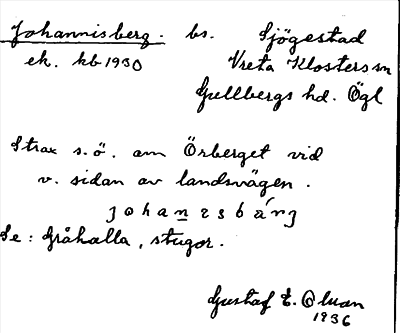 Johannisberg. bs. Sjögestad
ek. kb 1930 Vreta Klosters sn
Gullbergs hd. Ögl
Strax s.ö. om Örberget vid
v. sidan av landsvägen.
johanesbárj
Se: Gråhalla, stugor.
Gustaf E. Olson
1936